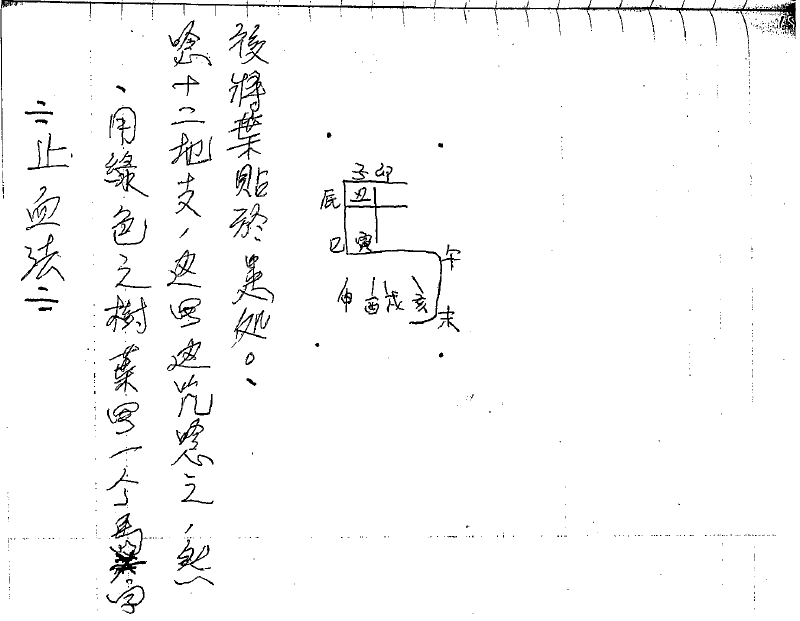 =止血法=
、用綠色之樹葉写一个馬字
唸十二地支,边写边咒唸之,然
後將葉貼於患处。
子卯
辰 丑
巳 寅 午
申 酉 戌 亥 未